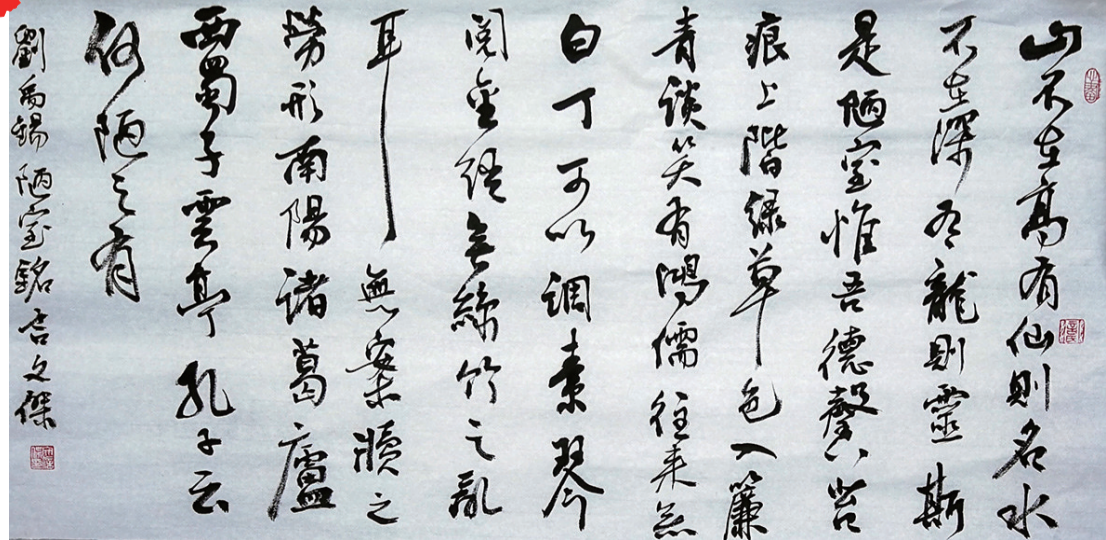 山不在高有仙則名水
不在深有龍則靈斯
是陋室惟吾德馨苔
痕上階緑草色入簾
青談笑有鴻儒往来無
白丁可以調素琴
閲金經無絲竹之亂
耳無案牘之
勞形南陽諸葛廬
西蜀子雲亭孔子云
何陋之有
劉禹錫陋室銘吉文傑